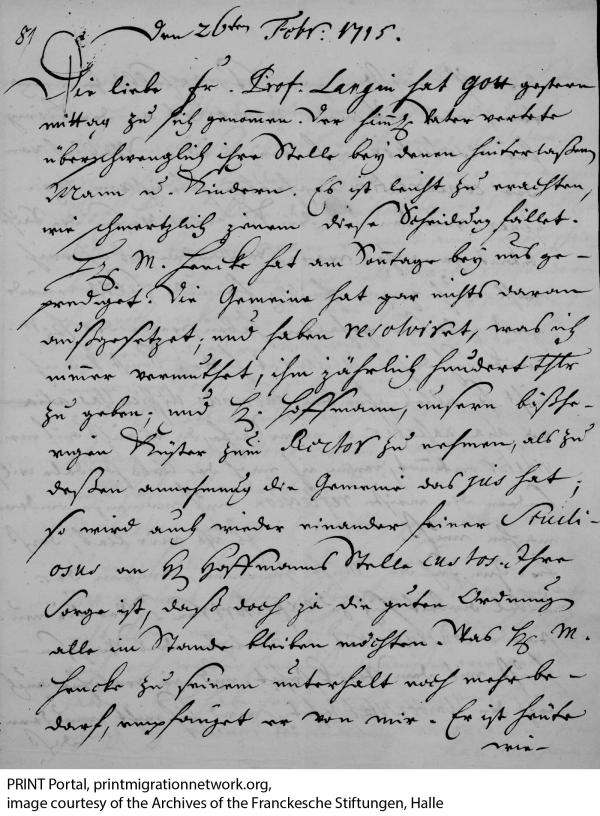 81
Den 26ten Febr: 1715.
Die liebe Fr. Prof. Langin hat Gott gestern
mittag zu sich genommen. Der himml. Vater vertrete
überschwenglich ihre Stelle bey denen hinterlaßenen
Mann u. Kindern. Es ist leicht zu erachten,
wie schmertzlich jenem diese Scheidung fället.
H. M. Hencke hat am Sontage bey uns ge-
prediget. Die Gemeine hat gar nichts daran
außgesetzet; und haben resolviret, was ich
nimmer vermuthet, ihm jährlich hundert Thlr
zu geben; und H. Hoffmann, unsern bißhe-
rigen Küster zum Rector zu nehmen, als zu
deßen annehmung die Gemeine das jus hat;
so wird auch wieder einander feiner Studi-
osus an H. Hoffmanns Stelle custos. Ihre
Sorge ist, daß doch ja die guten Ordnung
alle im Stande bleiben möchten. Was H. M.
Hencke zu seinem unterhalt noch mehr be-
darf, empfänget er von mir. Er ist heute
wie-
PRINT Portal, printmigrationnetwork.org,
image courtesy of the Archives of the Franckesche Stiftungen, Halle